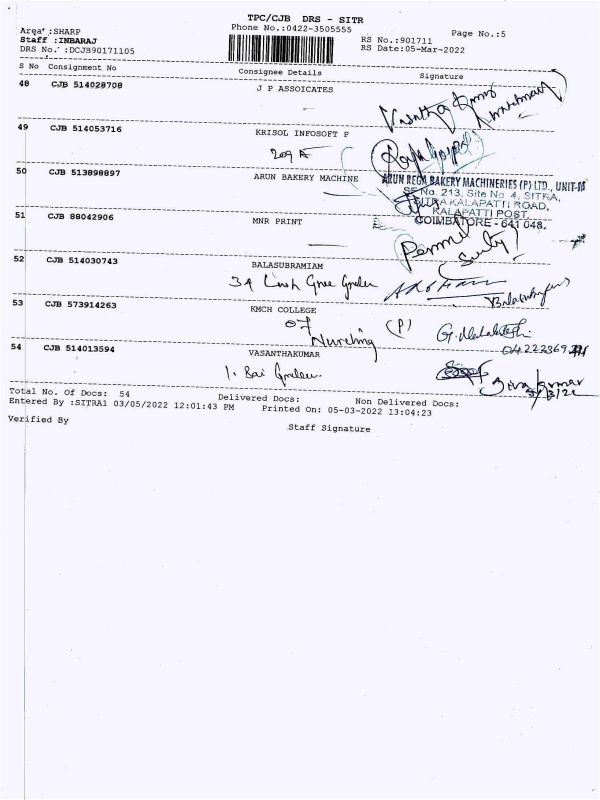 TPC/CJB DRS - SITR
Phone No.:0422-3505555
Page No.:5
Arqa :SHARP
Staff :INBARAJ
RS No.:901711
DRS No. :DCJB90171105
RS Date:05-Mar-2022
S No Consignment No Consignee Details Signature
48 CJB 514028708 J P ASSOICATES
49 CJB 514053716 KRISOL INFOSOFT P
209 A
50 CJB 513898897 ARUN BAKERY MACHINE
ARUN REGA BAKERY MACHINERIES (P) LTD., UNIT-
SF No. 213, Site No. 4, SITRA,
SITRA KALAPATTI ROAD,
KALAPATTI POST,
COIMBATORE - 641 048.
51 CJB 88042906 MNR PRINT
52 CJB 514030743 BALASUBRAMIAM
53 CJB 573914263 KMCH COLLEGE
07 Nursing (P)
54 CJB 514013594 VASANTHAKUMAR
Siva Kumar
Total No. Of Docs: 54 Delivered Docs: Non Delivered Docs:
Entered By :SITRA1 03/05/2022 12:01:43 PM Printed On: 05-03-2022 13:04:23
Verified By
Staff Signature